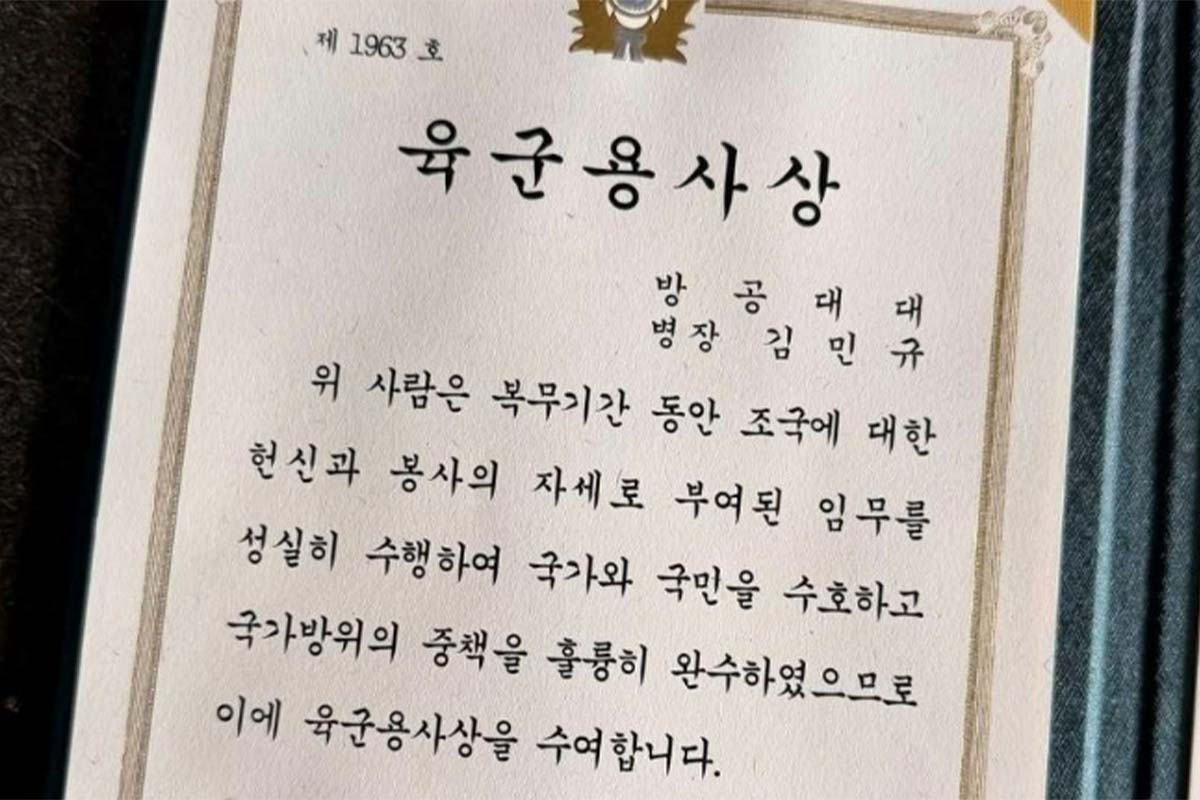 제 1963 호
육군용사상
방 공 대 대
병장 김 민 규
위 사람은 복무기간 동안 조국에 대한
헌신과 봉사의 자세로 부여된 임무를
성실히 수행하여 국가와 국민을 수호하고
국가방위의 중책을 훌륭히 완수하였으므로
이에 육군용사상을 수여합니다.